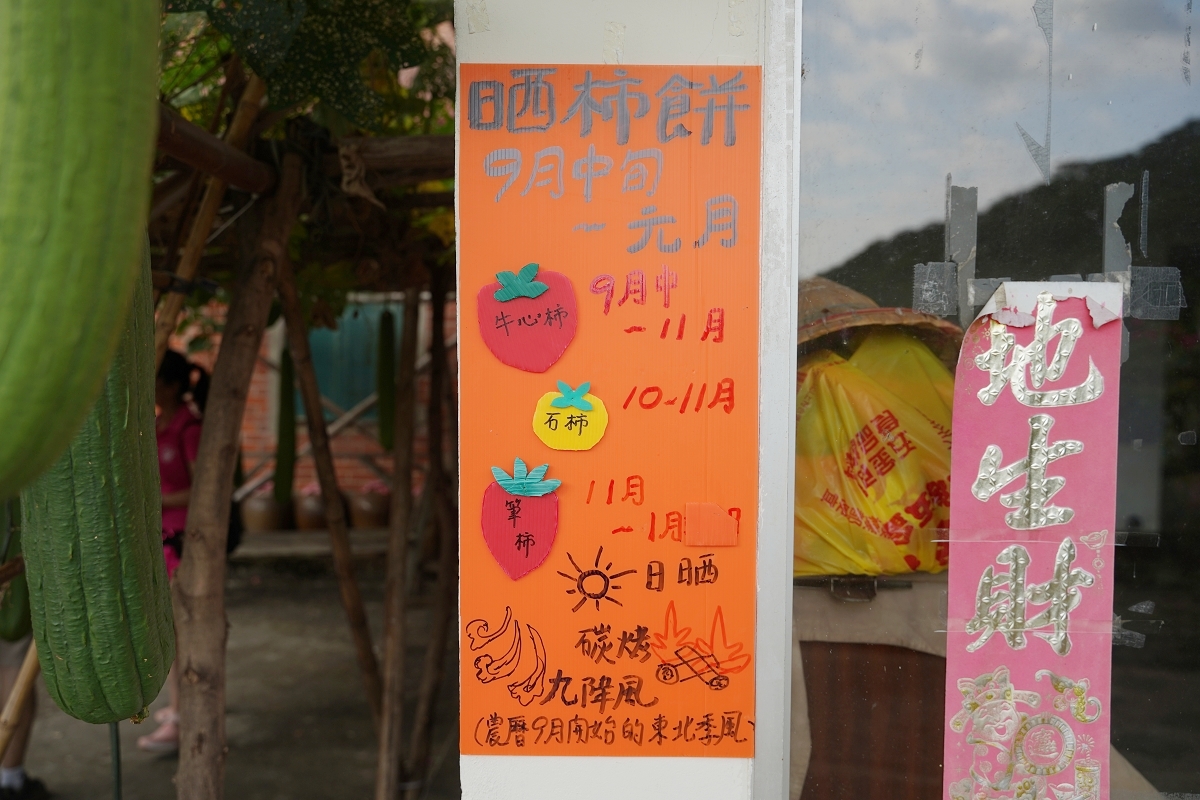 晒柿餅
9月中旬
-元月
牛心柿
9月中
~11月
石柿
10~11月
筆柿
11月
~1月
日晒
碳烤
九降風
(農曆9月開始的東北季風)
地生財